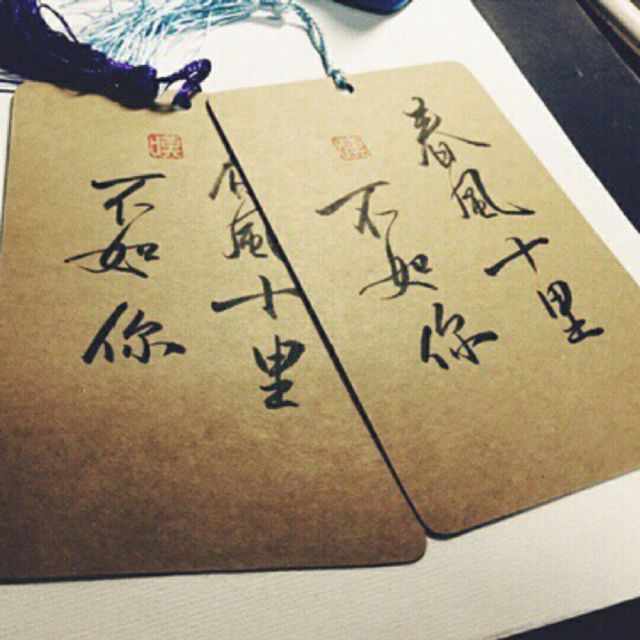 春風十里
不如你
春風十里
不如你